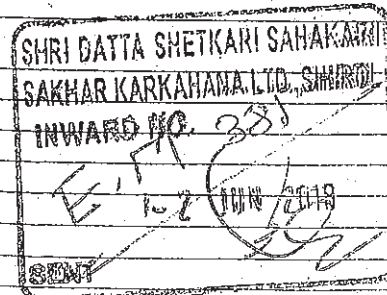 SHRI DATTA SHETKARI SAHAKARI
SAKHAR KARKAHANA LTD., SHIROL
INWARD NO. 331
JUN 2018
SENT